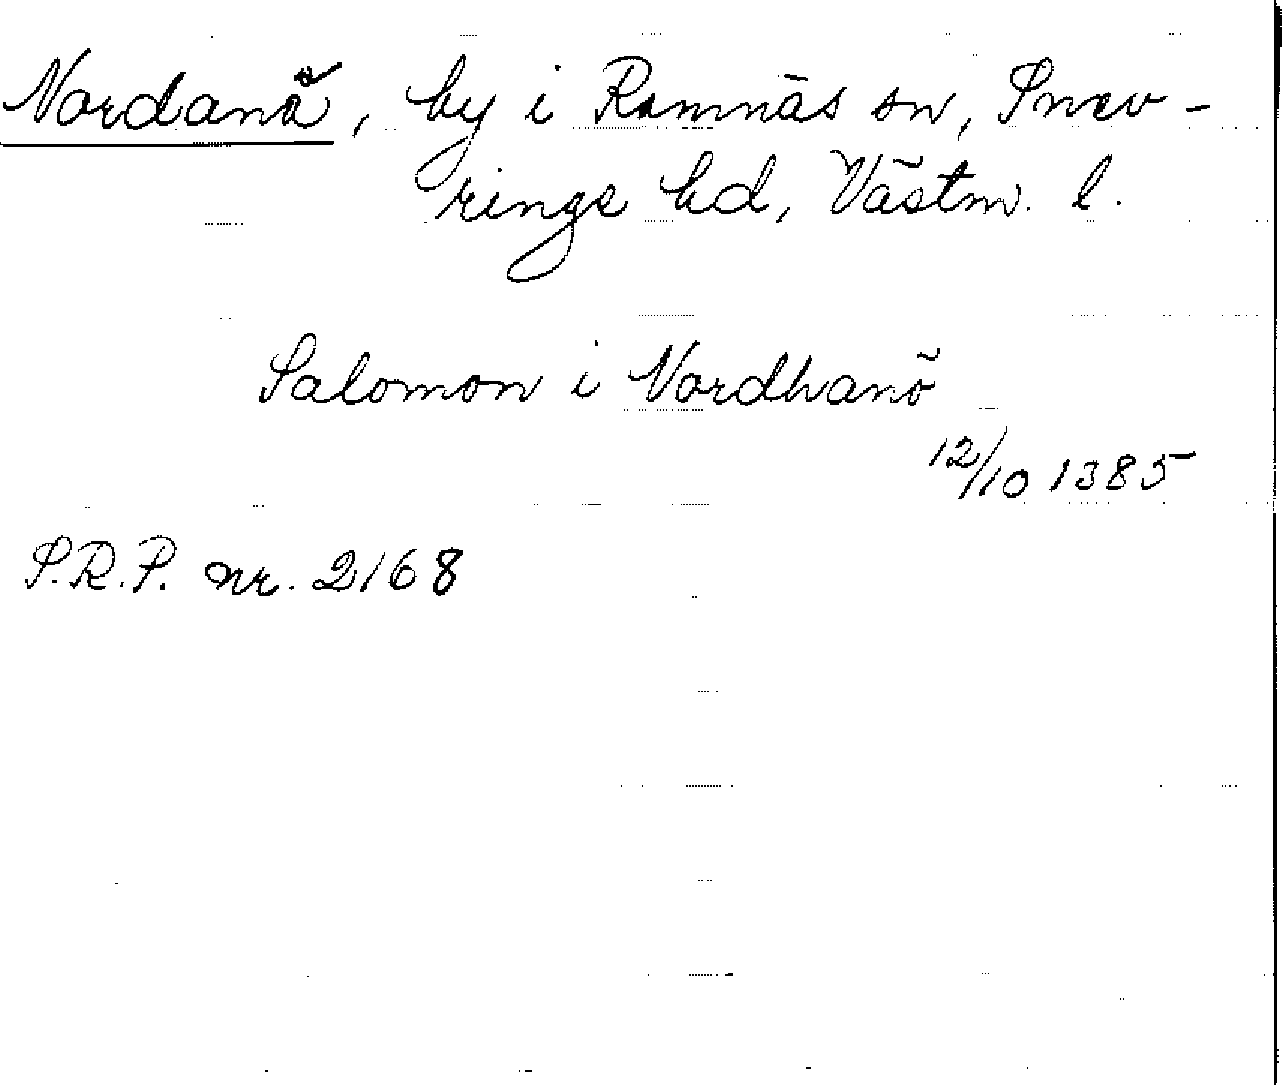 Nordanö, by i Ramnäs sn, Snev-
rings hd, Västm. l.
Salomon i Nordhanö
12/10 1385
S.R.P. nr. 2168